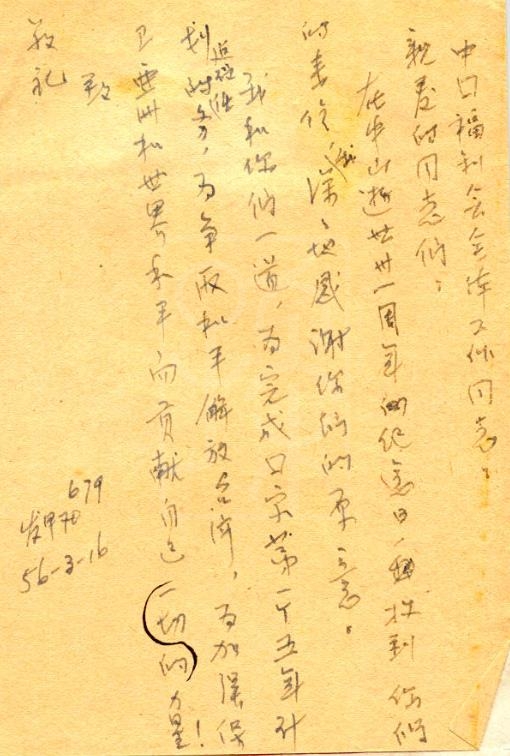 中口福利会全体工作同志:
亲爱的同志们:
在中山逝世卅一周年的纪念日,我收到你们
的来信,我深深地感谢你们的厚意。
我和你们一道,为完成口家第一个五年计
划的努力,为争取和平解放台湾,为加强保
卫亚洲和世界和平而贡献自己一切的力量!
致
敬礼
679
发甲
56-3-16